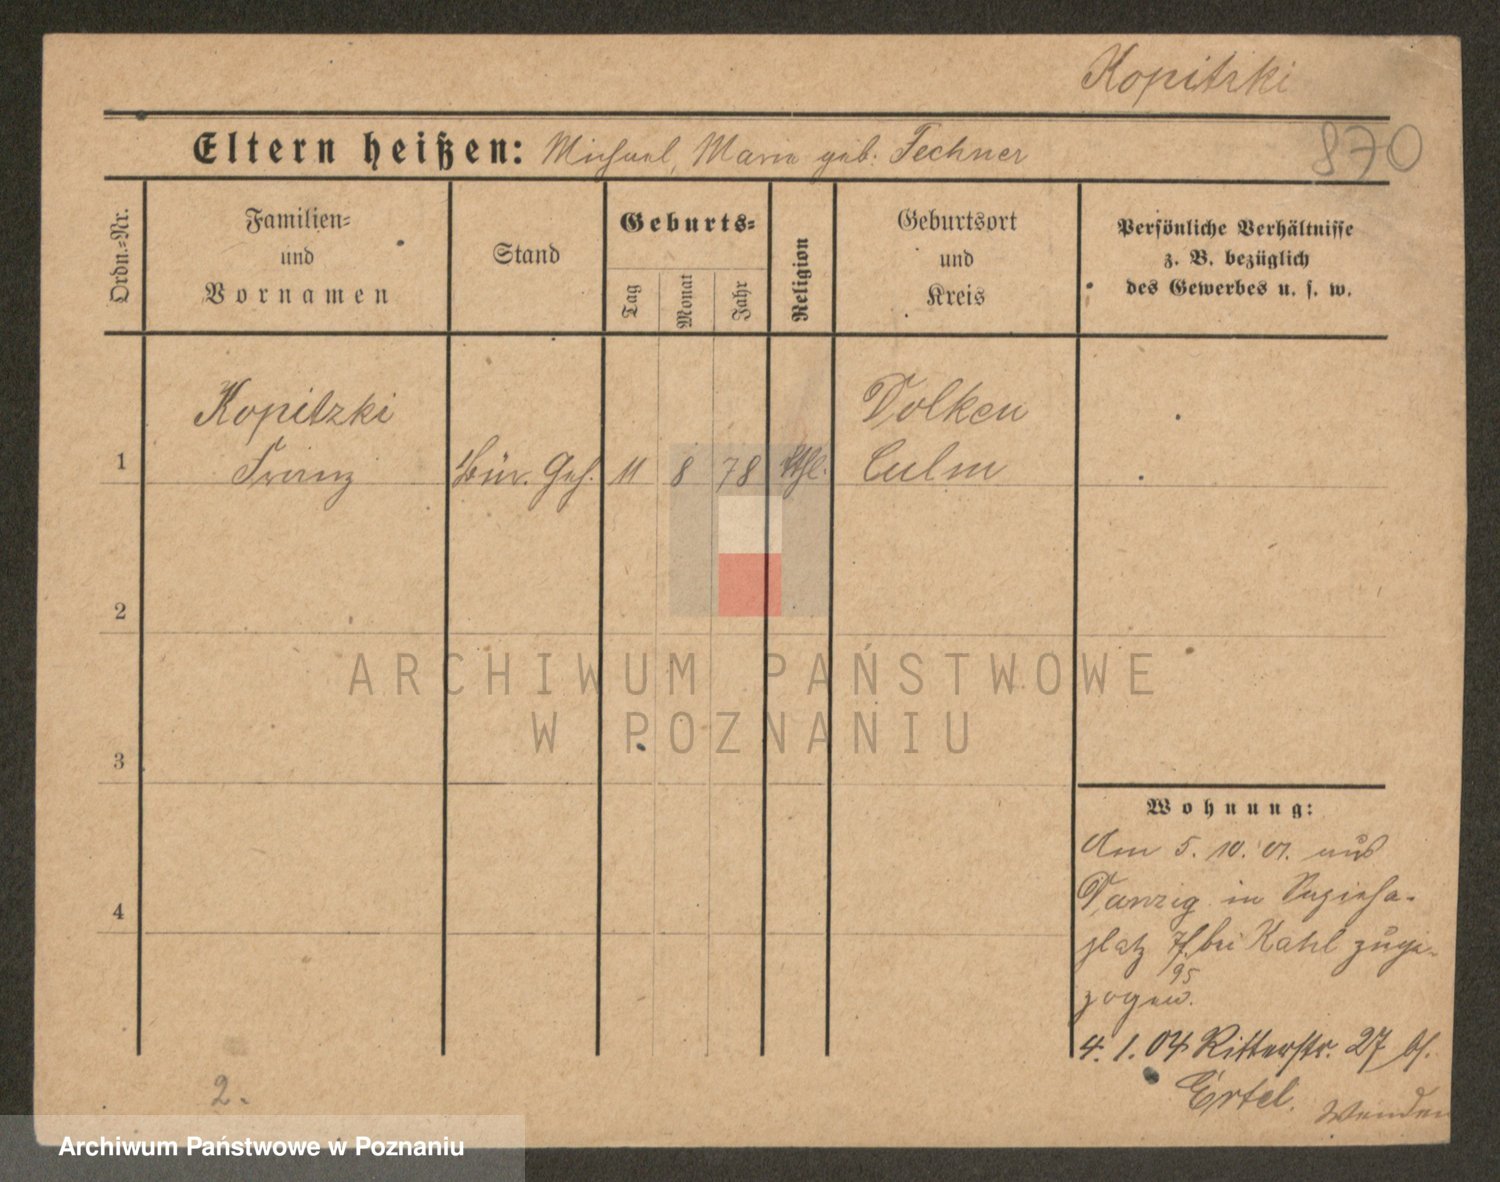 Kopitzki
870
Eltern heißen: Michael, Marie geb: Fechner
Ordn.=Nr.
Familien=
und
Vornamen
Stand
Geburts=
Tag
Monat
Jahr
Religion
Geburtsort
und
Kreis
Persönliche Verhältnisse
z. B. bezüglich
des Gewerbes u. s. w.
Kopitzki
Dolken
1 Franz Bür. Geh. 11 8 78 kthl. Culm
2
ARCHIWUM PAŃSTWOWE
W POZNANIU
3
Wohnung:
Am 5. 10. 01. aus
Danzig in
platz bei Kahl zuge-
95
zogen.
4
4. 1. 04 Ritterstr. 27 bf.
Ertel.
Wenden
2.
Archiwum Państwowe w Poznaniu